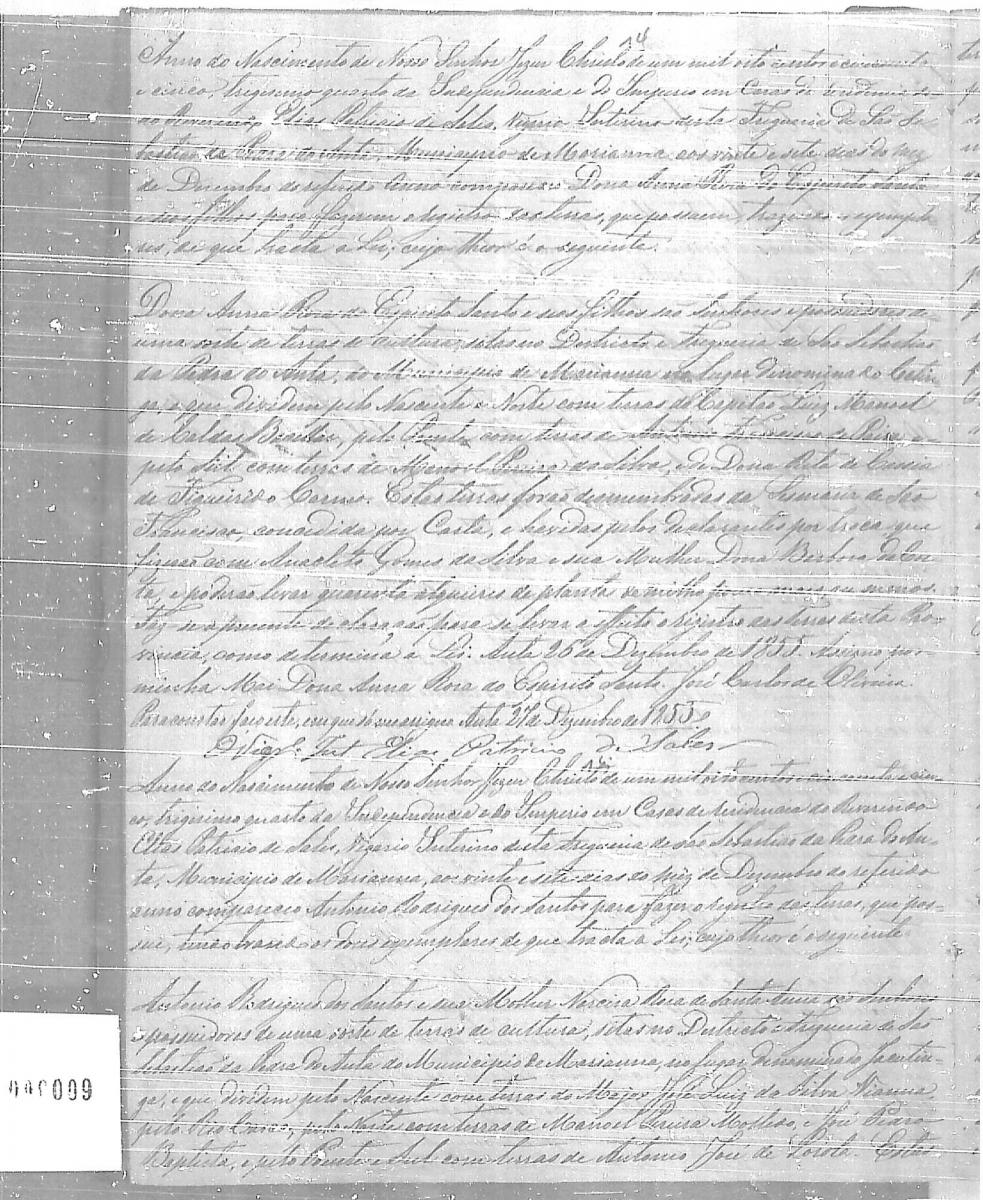 14
Anno do Nascimento de Nosso Senhor Jezus Christo de um mil oito centos e cincoenta
e cinco, trigesimo quarto da Independencia e do Imperio em Casas de residencia do
ao Reverendo Elias Patricio de Sales, Vigario Interino desta Freguesia de São Se-
bastião da Pedra do Anta, Municipio de Marianna aos vinte e sete dias do mez
de Dezembro do referido anno compareceo Dona Anna Rosa do Espirito Santo
e seos filhos para fazerem o registro das terras, que possuem, trazendo os exempla-
res, de que tracta a Lei, cujo theor é o seguinte.
Dona Anna Rosa do Espirito Santo e seos filhos são Senhores e possuidores de
uma sorte de terras de cultura, sitas no Destricto e Freguesia de São Sebastião
da Pedra do Anta, do Municipio de Marianna no lugar denominado
e que dividem pelo Nascente e Norte com terras do Capitão Luiz Manoel
de Caldas Bacellar, pelo Poente com terras de Antonio de Paiva, e
pelo Sul com terras de Manoel Pereira da Silva, e de Dona Rita de Cassia
de Figueiredo Carneiro. Estas terras forão desmembradas da Sesmaria de São
Francisco, concedida por Carta, e havidas pelos declarantes por troca que
fizerão com Anacleto Gomes da Silva e sua Mulher Dona Barbosa da Cos-
ta, e poderão levar quarenta alqueires de planta de milho pouco mais ou menos.
Faz se a presente declaração para se levar a effeito o registro das terras desta Pro-
vincia, como determina a Lei. Anta 26 de Dezembro de 1855. Assigno por
minha Mai Dona Anna Rosa do Espirito Santo. José Carlos de Oliveira.
Para constar faço este, em que só me assigno Anta 27 de Dezembro de 1855.
O Vigr.º Int Elias Patricio de Sales
15
Anno do Nascimento de Nosso Senhor Jezus Christo de um mil oito centos e cincoenta e cin-
co, trigesimo quarto da Independencia e do Imperio em Casas de residencia do Reverendo
Elias Patricio de Sales, Vigario Interino desta Freguesia de São Sebastião da Pedra do An-
ta, Municipio de Marianna, aos vinte e sete dias do mez de Dezembro do referido
anno compareceo Antonio Rodrigues dos Santos para fazer o registro das terras, que pos-
sue, os dous exemplares de que tracta a Lei, cujo theor é o seguinte
Antonio Rodrigues dos Santos e sua Molher Rosa de Santa Anna são Senhores
e possuidores de uma sorte de terras de cultura, sitas no Destricto e Freguesia de São
Sebastião da Pedra do Anta do Municipio de Marianna, no lugar denominado Jacutin-
ga, e que dividem pelo Nascente com terras do Major José Luiz da Silva Vianna
pelo Rio Casca, pelo Norte com terras de Manoel Pereira Molledo, e José Pedro
Baptista, e pelo Poente e Sul com terras de Antonio José de Estas